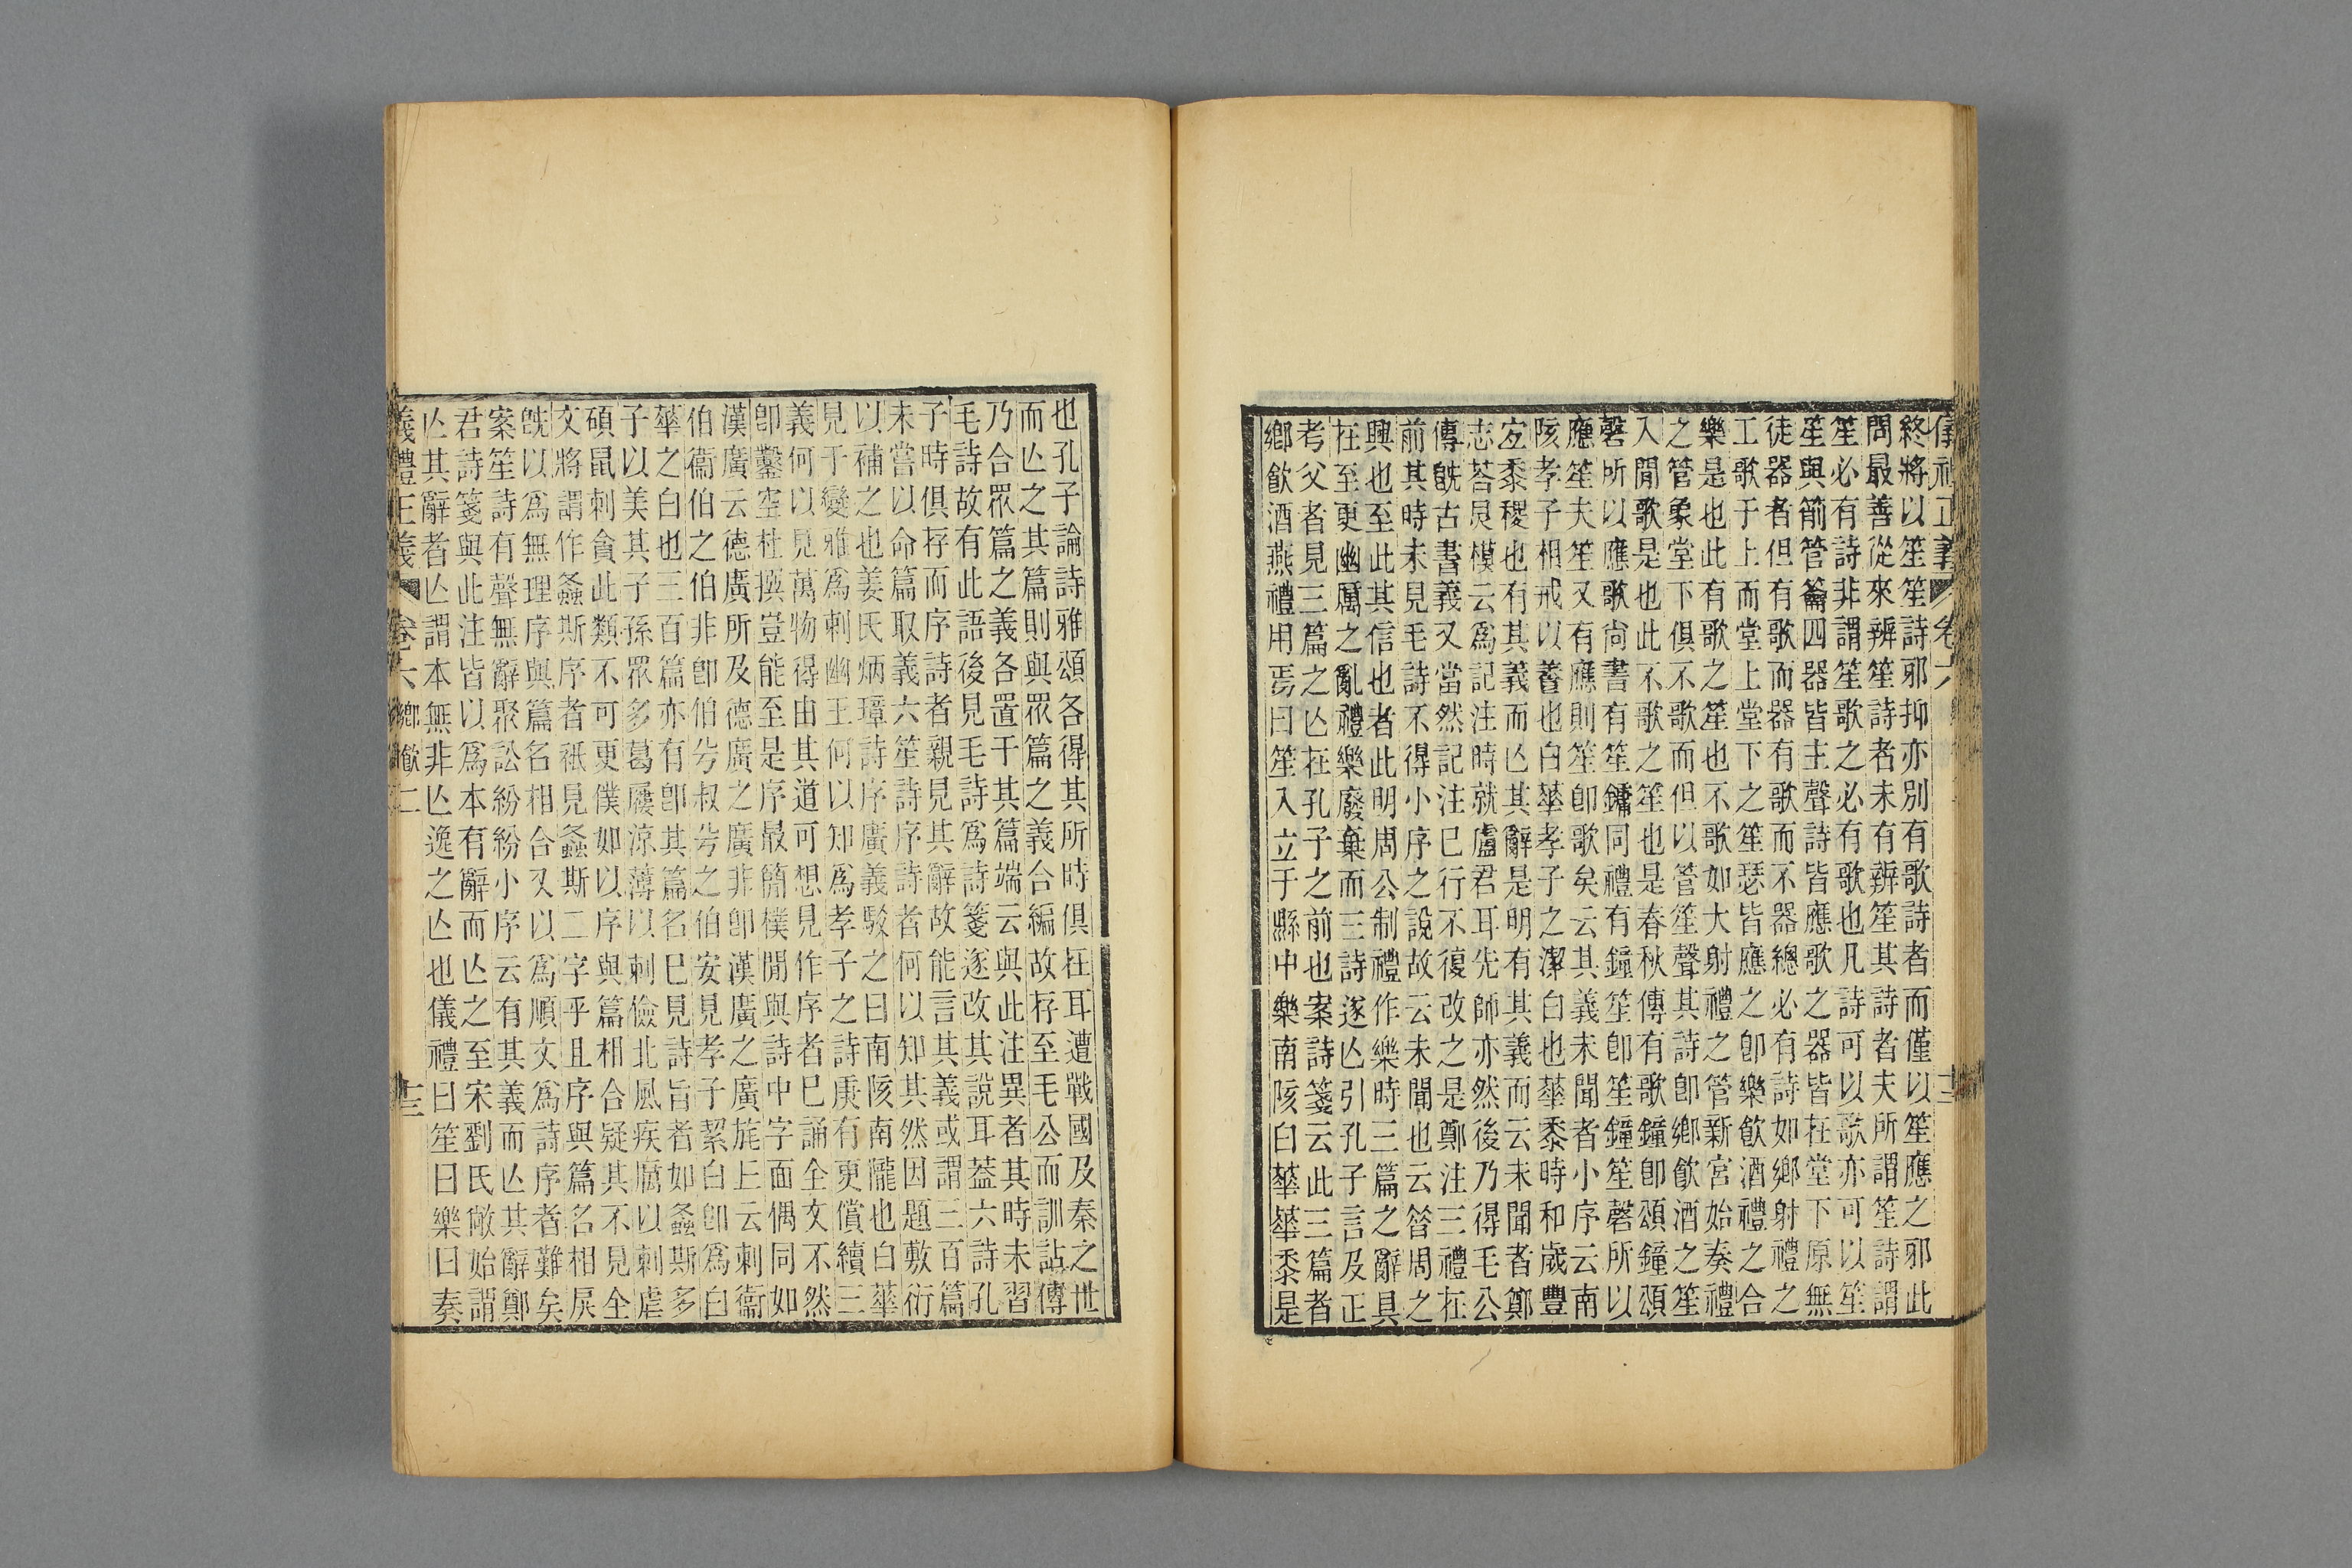 儀禮正義 卷六 十二
終將以笙笙詩邪抑亦別有歌詩者而僅以笙應之邪此
問最善從來辨笙詩者未有辨笙其詩者夫所謂笙詩謂
笙必有詩非謂笙歌之必有歌也凡詩可以歌亦可以笙
笙與簫管籥四器皆主聲詩皆應歌之器皆在堂下原無
徒器者但有歌而器有歌而不器總必有詩如鄉射禮之
工歌于上而堂上堂下之笙瑟皆應之卽樂飮酒禮之合
樂是也此有歌之笙也不歌如大射禮之管新宮始奏禮
之管象堂下俱不歌而但以管笙聲其詩卽鄉飮酒之笙
入閒歌是也此不歌之笙也是春秋傳有歌鐘卽頌鐘頌
磬所以應歌尙書有笙鏞同禮有鐘笙卽笙鐘笙磬所以
應笙夫笙又有應則笙卽歌矣云其義未聞者小序云南
陔孝子相戒以養也白華孝子之潔白也華黍時和歲豐
宐黍稷也有其義而亾其辭是明有其義而云未聞者鄭
志荅炅模云爲記注時就盧君耳先師亦然後乃得毛公
傳旣古書義又當然記注已行不復改之是鄭注三禮在
前其時未見毛詩不得小序之說故云未聞也云昝周之
興也至此其信也者此明周公制禮作樂時三篇之辭具
在至更幽厲之亂禮樂廢棄而三詩遂亾引孔子言及正
考父者見三篇之亾在孔子之前也案詩箋云此三篇者
鄉飮酒燕禮用焉曰笙入立于縣中樂南陔白華華黍是
也孔子論詩雅頌各得其所時俱在耳遭戰國及秦之世
而亾之其篇則與眾篇之義合編故存至毛公而訓詁傳
乃合眾篇之義各置于其篇端云與此注異者其時未習
毛詩故有此語後見毛詩爲詩箋遂改其說耳葢六詩孔
子時俱存而序詩者親見其辭故能言其義或謂三百篇
未嘗以命篇取義六笙詩序詩者何以知其然因題敷衍
以補之也姜氏炳璋詩序廣義駁之曰南陔南隴也白華
見于變雅爲刺幽王何以知爲孝子之詩庚有更償續三
義何以見萬物得由其道可想見作序者已誦全文不然
卽鑿空杜撰豈能至是序最簡樸閒與詩中字面偶同如
漢廣云德廣所及德廣之廣非卽漢廣之廣旄上云刺衞
伯衞伯之伯非卽伯兮叔兮之伯安見孝子絜白卽爲白
華之白也三百篇亦有卽其篇名已見詩旨者如螽斯多
子以美其子孫眾多葛屨涼薄以刺儉北風疾厲以刺虐
碩鼠刺貪此類不可更僕如以序與篇相合疑其不見全
文將謂作螽斯序者祇見螽斯二字乎且序與篇名相戾
旣以爲無理序與篇名相合又以爲順文爲詩序者難矣
案笙詩有聲無辭聚訟紛紛小序云有其義而亾其辭鄭
君詩箋與此注皆以爲本有辭而亾之至宋劉氏敞始謂
亾其辭者亾謂本無非亾逸之亾也儀禮曰笙曰樂曰奏
義禮正義 卷六 鄉飮二 十三